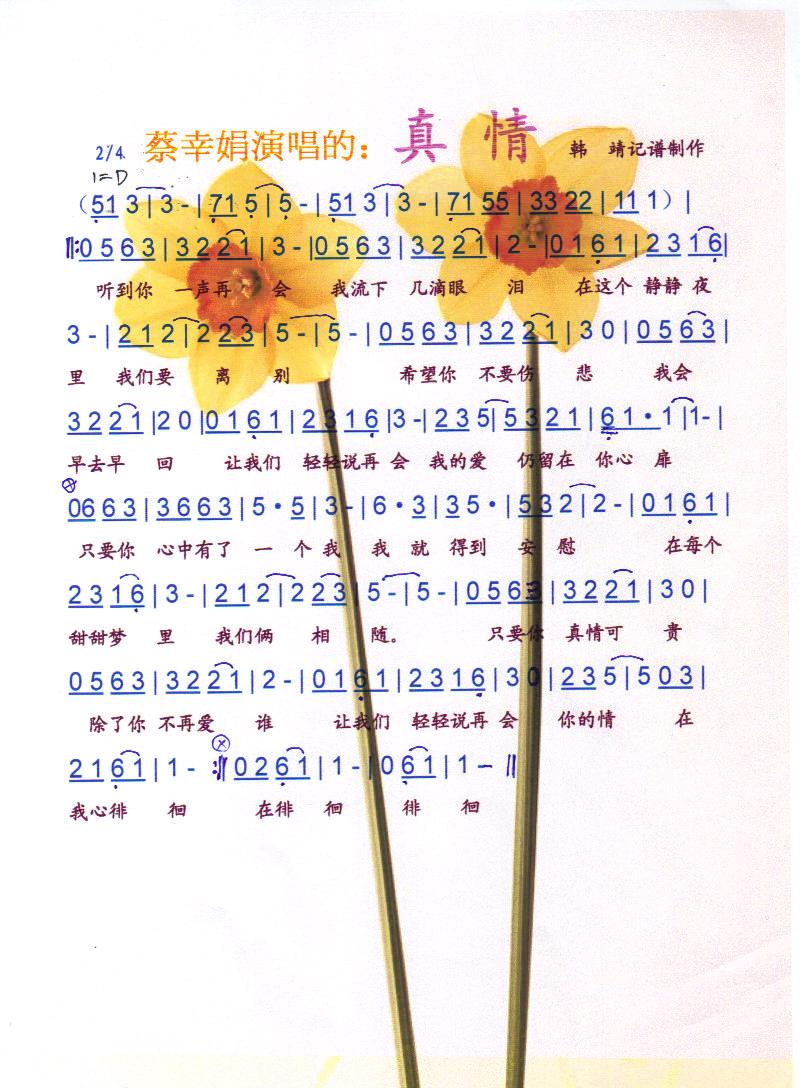 2/4. 蔡幸娟演唱的：真 情 韩 靖记谱制作
1=D
（51 3 | 3 - | 71 5 | 5 - | 51 3 | 3 - | 71 55 | 33 22 | 11 1）|
‖:0 5 6 3 | 3 2 2 1 | 3 - | 0 5 6 3 | 3 2 2 1 | 2 - | 0 1 6 1 | 2 3 1 6 |
听到你 一声再 会 我流下 几滴眼 泪 在这个 静静 夜
3 - | 2 1 2 | 2 2 3 | 5 - | 5 - | 0 5 6 3 | 3 2 2 1 | 3 0 | 0 5 6 3 |
里 我们要 离 别 希望你 不要伤 悲 我会
3 2 2 1 | 2 0 | 0 1 6 1 | 2 3 1 6 | 3 - | 2 3 5 | 5 3 2 1 | 6 1 • 1 | 1 - |
早去早 回 让我们 轻轻说再 会 我的爱 仍留在 你心 扉
0 6 6 3 | 3 6 6 3 | 5 • 5 | 3 - | 6 • 3 | 3 5 • | 5 3 2 | 2 - | 0 1 6 1 |
只要你 心中有了 一 个 我 我 就 得到 安 慰 在每个
2 3 1 6 | 3 - | 2 1 2 | 2 2 3 | 5 - | 5 - | 0 5 6 3 | 3 2 2 1 | 3 0 |
甜甜梦 里 我们俩 相 随。 只要你 真情可 贵
0 5 6 3 | 3 2 2 1 | 2 - | 0 1 6 1 | 2 3 1 6 | 3 0 | 2 3 5 | 5 0 3 |
除了你 不再爱 谁 让我们 轻轻说再 会 你的情 在
2 1 6 1 | 1 - :‖ 0 2 6 1 | 1 - | 0 6 1 | 1 - ‖
我心徘 徊 在徘 徊 徘 徊